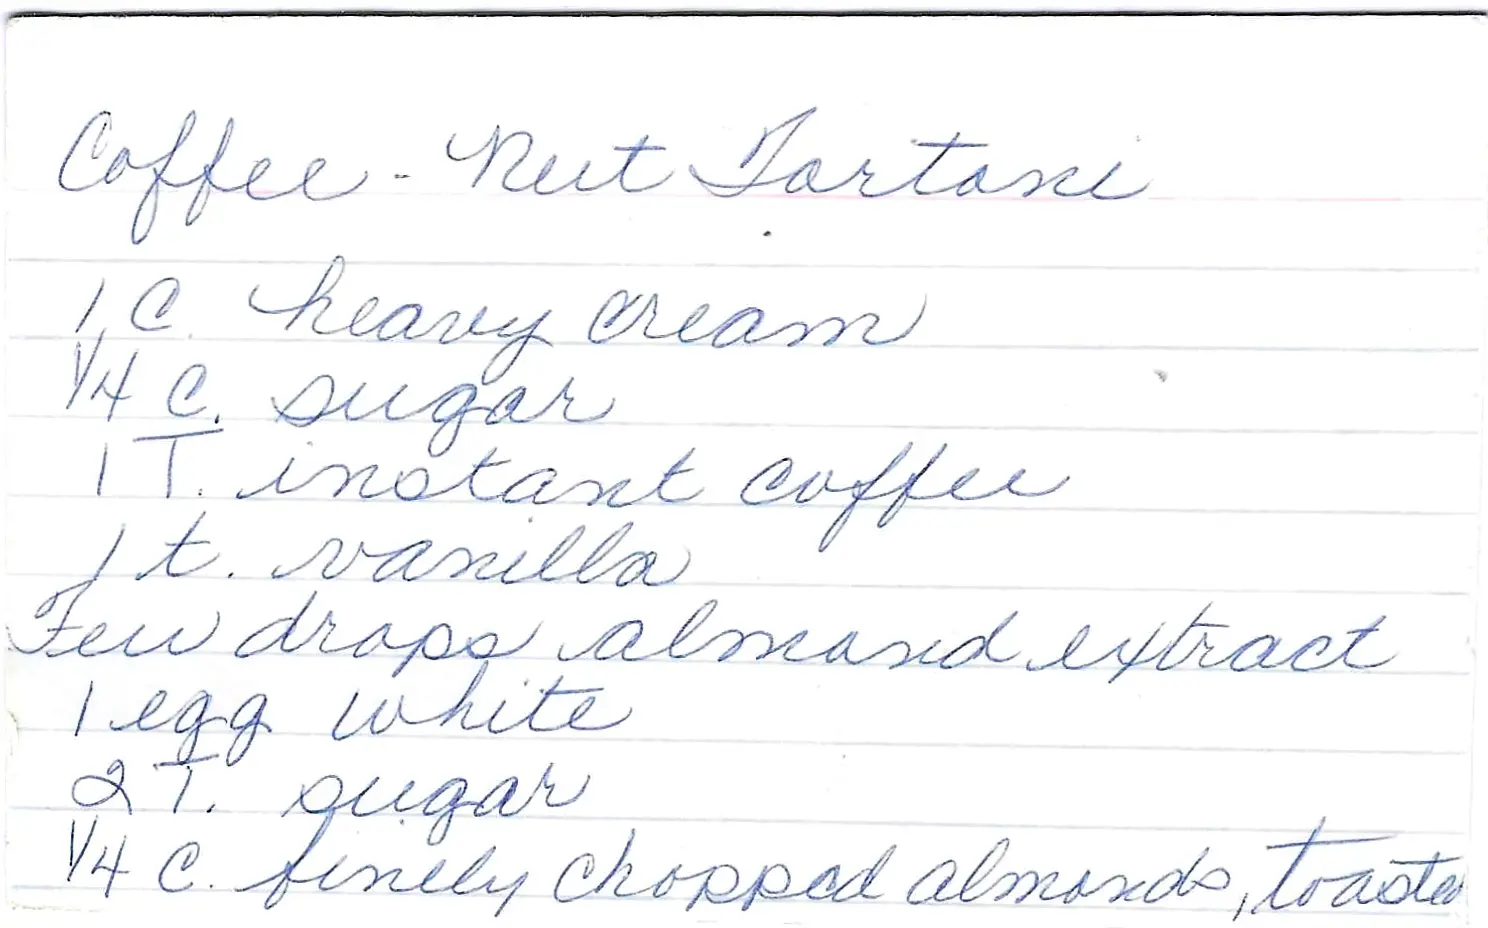 Coffee - Nut Tortoni
1 C. heavy cream
1/4 C. sugar
1 T. instant coffee
1 t. vanilla
Few drops almond extract
1 egg white
2 T. sugar
1/4 C. finely chopped almonds, toasted